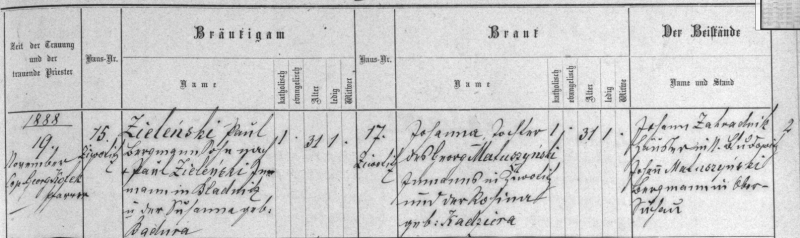 Zeit der Trauung
und der
trauende Priester
Haus-Nr.
Bräutigam
Name
katholisch
evangelisch
Alter
ledig
Witwer
Haus-Nr.
Braut
Name
katholisch
evangelisch
Alter
ledig
Witwe
Der Beistände
Name und Stand
1888
19.
November
Pfarrer
75.
Żiwotitz
Zieleński Paul
Bergmann Sohn
Paul Zieleński
mann in Bladnitz
u der Susanna geb.
Badura
1
31
1
17.
Żiwotitz
Johanna, Tochter
des Georg Matuszyński
Inmanns in Żiwotitz
und der Rosina
geb:
1
31
1
Johann Zahradnik
in
Johann Matuszyński
Bergmann in Ober-
Suchau